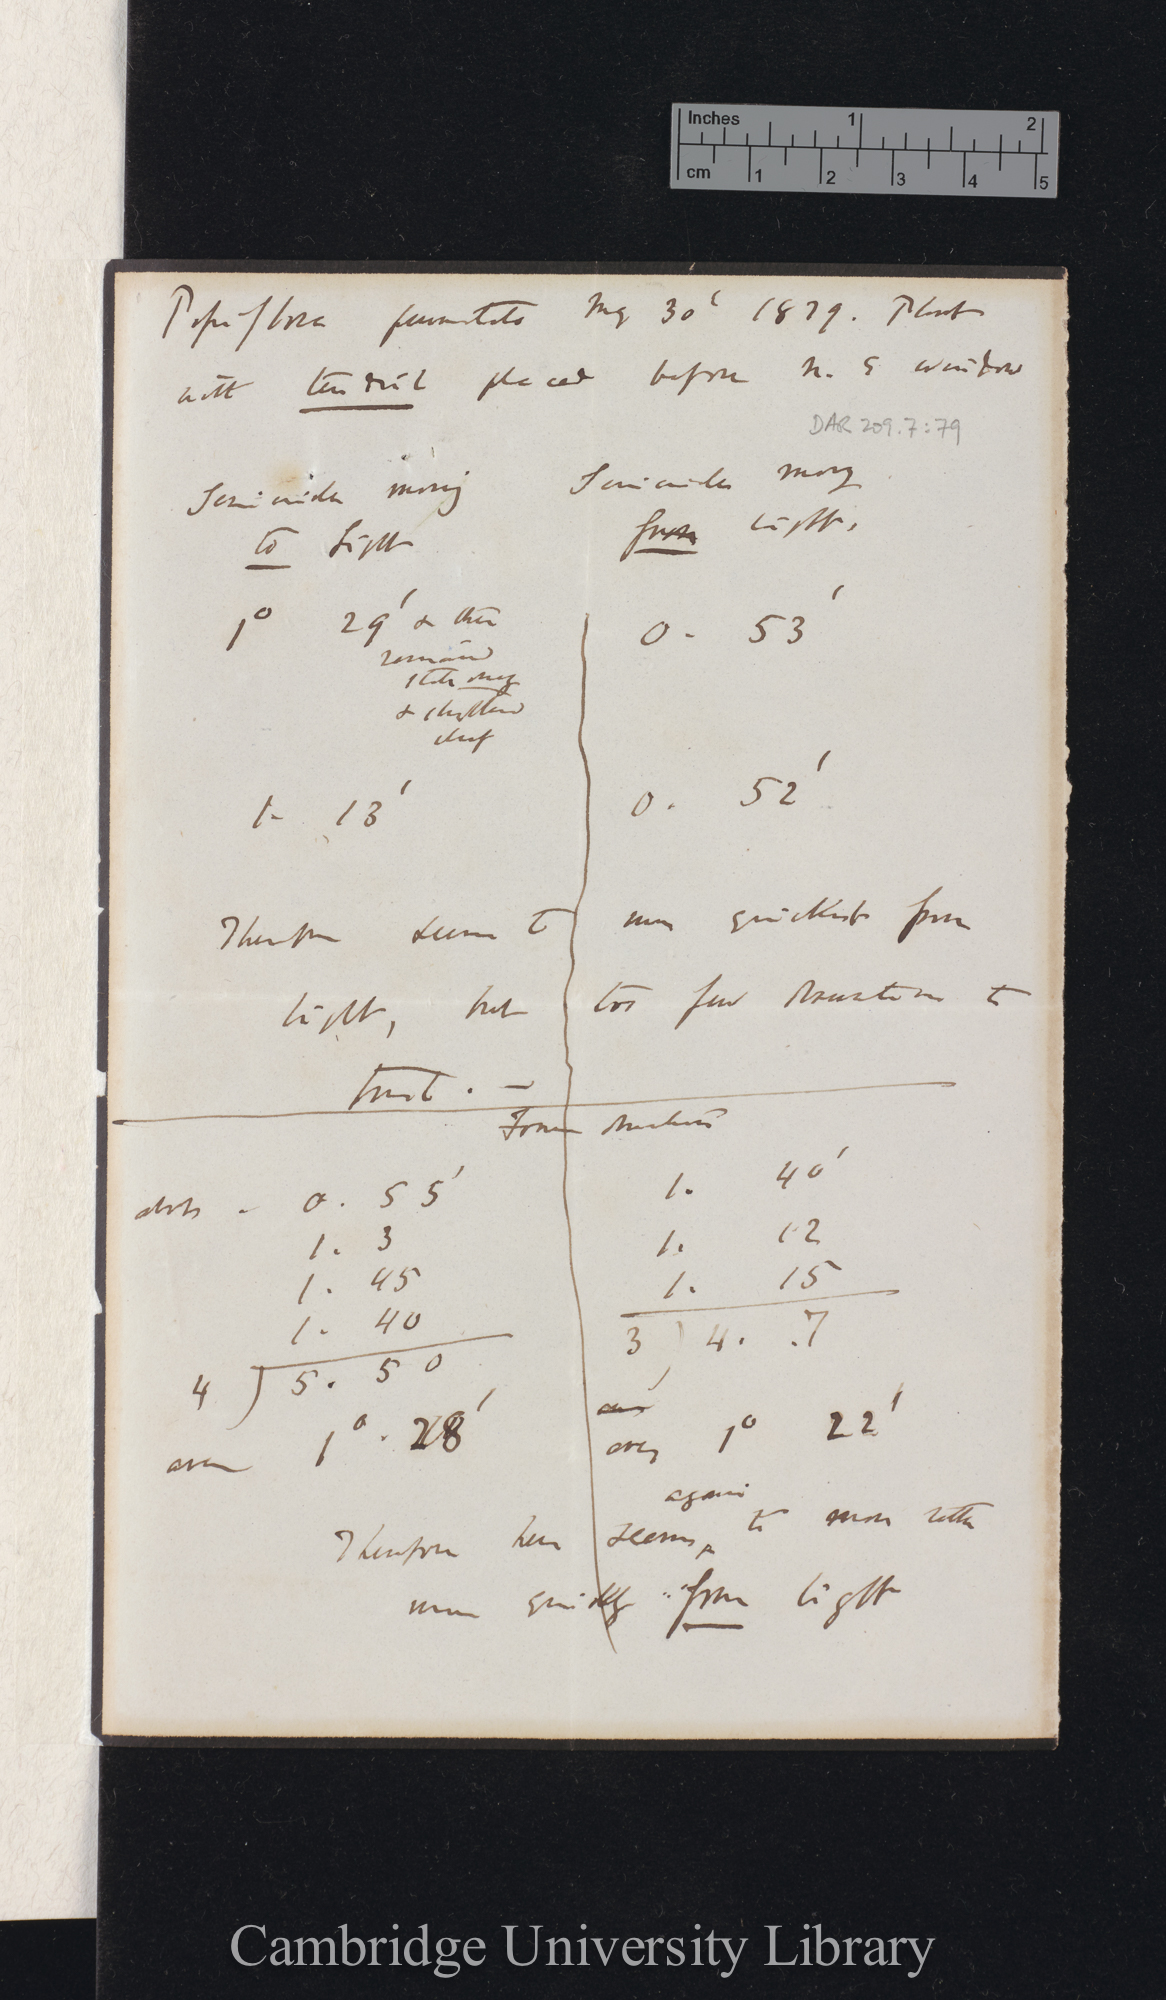 Inches 1 2
cm 1 2 3 4 5
Passiflora punctata Aug 30' 1879. Plant
with tendril placed before N. E window
DAR 209.7:79
Semicircle moving
to light
Semicircle moving
from light.
1° 29' & then
remained
stationary
& shifted
0. 53'
1. 13'
0. 52'
Therefore seems to move quickest from
light, but too few observations to
trust. —
Former observations
0. 55'
1. 3
1. 45
1. 40
4 ) 5. 50
aver 1°. 28'
1. 40'
1. 12
1. 15
3 ) 4. 7
aver 1° 22'
again
Therefore here seems to move rather
more quickly from light
Cambridge University Library